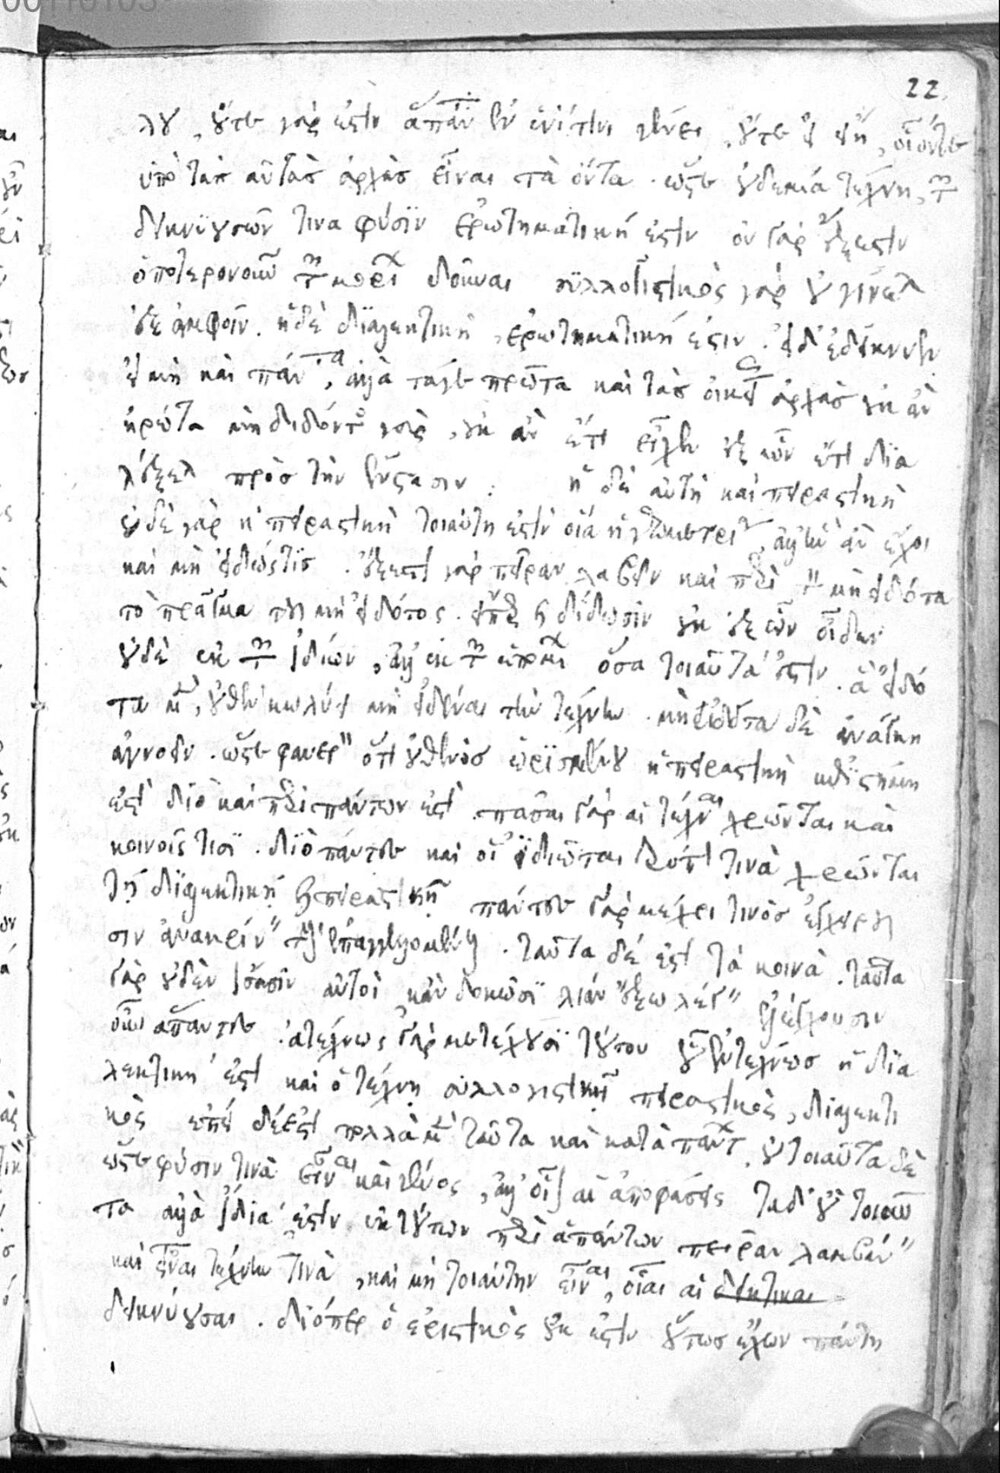 22
λου, οὔτε γάρ ἐστιν ἅπαντα ἐν ἑνί τινι γένει, οὔτε εἰ εἴη, οἷόντε
ὑπὸ τὰς αὐτὰς ἀρχὰς εἶναι τὰ ὄντα. ὥστε οὐδεμία τέχνη τῶν
δεικνυουσῶν τινα φύσιν ἐρωτηματική ἐστιν οὐ γὰρ ἔξεστιν
ὁποτερονοῦν τῶν μορίων δοῦναι συλλογισμὸς γὰρ οὐ γίνεται
ἐξ ἀμφοῖν. ἡ δὲ διαλεκτικὴ, ἐρωτηματική ἐστιν. εἰ δ' ἐδείκνυεν
εἰ μὴ καὶ πάντα, ἀλλὰ τάγε πρῶτα καὶ τὰς οἰκείας ἀρχὰς οὐκ ἂν
ἠρώτα μὴ διδόντος γὰρ, οὐκ ἂν ἔτι εἶχεν ἐξ ὧν ἔτι δια
λέξεται πρὸς τὴν ἔνστασιν. ἡ δὲ αὐτὴ καὶ πειραστικὴ
οὐδὲ γὰρ ἡ πειραστικὴ τοιαύτη ἐστὶν οἵα ἡ γεωμετρία, ἀλλ' ἣν ἂν ἔχοι
καὶ μὴ εἰδώς τις. ἔξεστι γὰρ πεῖραν λαβεῖν καὶ περὶ τὸν μὴ εἰδότα
τὸ πρᾶγμα τοῦ μὴ εἰδότος. εἴπερ καὶ δίδωσιν οὐκ ἐξ ὧν οἶδεν
οὐδὲ ἐκ τῶν ἰδίων, ἀλλ' ἐκ τῶν ἑπομένων ὅσα τοιαῦτά ἐστιν. ἃ εἰδό
τα μὲν, οὐθὲν κωλύει μὴ εἰδέναι τὴν τέχνην. μὴ εἰδότα δὲ ἀνάγκη
ἀγνοεῖν. ὥστε φανερὸν ὅτι οὐθενὸς ὡρισμένου ἡ πειραστικὴ ἐπιστήμη
ἐστὶ διὸ καὶ περὶ πάντων ἐστὶ. πᾶσαι γὰρ αἱ τέχναι χρῶνται καὶ
κοινοῖς τισι. διὸ πάντες καὶ οἱ ἰδιῶται τρόπον τινὰ χρῶνται
τῇ διαλεκτικῇ καὶ πειραστικῇ πάντες γὰρ μέχρι τινὸς ἐγχειροῦ
σιν ἀνακρίνειν τοὺς ἐπαγγελλομένους. ταῦτα δέ ἐστι τὰ κοινὰ. ταῦτα
γὰρ οὐδὲν ἴσασιν αὐτοὶ κἂν δοκῶσι λίαν ἔξω λέγειν ἐλέγχουσιν
οὖν ἅπαντες. ἀτέχνως γὰρ μετέχουσι τούτου οὗ ἐντέχνως ἡ δια
λεκτική ἐστι καὶ ὁ τέχνῃ συλλογιστικῇ πειραστικὸς, διαλεκτι
κὸς ἐπεὶ δέ ἐστι πολλὰ μὲν ταῦτα καὶ κατὰ πάντων. οὐ τοιαῦτα δὲ
ὥστε φύσιν τινὰ εἶναι καὶ γένος, ἀλλ' οἷον αἱ ἀποφάσεις τὰ δ' οὐ τοιαῦ
τα ἀλλὰ ἴδιά ἐστιν ἐκ τούτων περὶ ἁπάντων πεῖραν λαμβάνειν
καὶ εἶναι τέχνην τινὰ, καὶ μὴ τοιαύτην εἶναι, οἷαι αἱ δεικτικαι
δεικνύουσαι. διόπερ ὁ ἐριστικὸς οὐκ ἔστιν οὕτως ἔχων πάντῃ